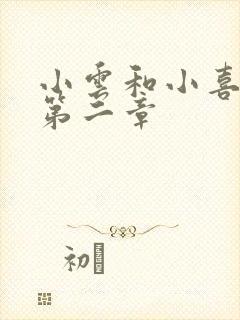 小雲和小喜
第二章
初